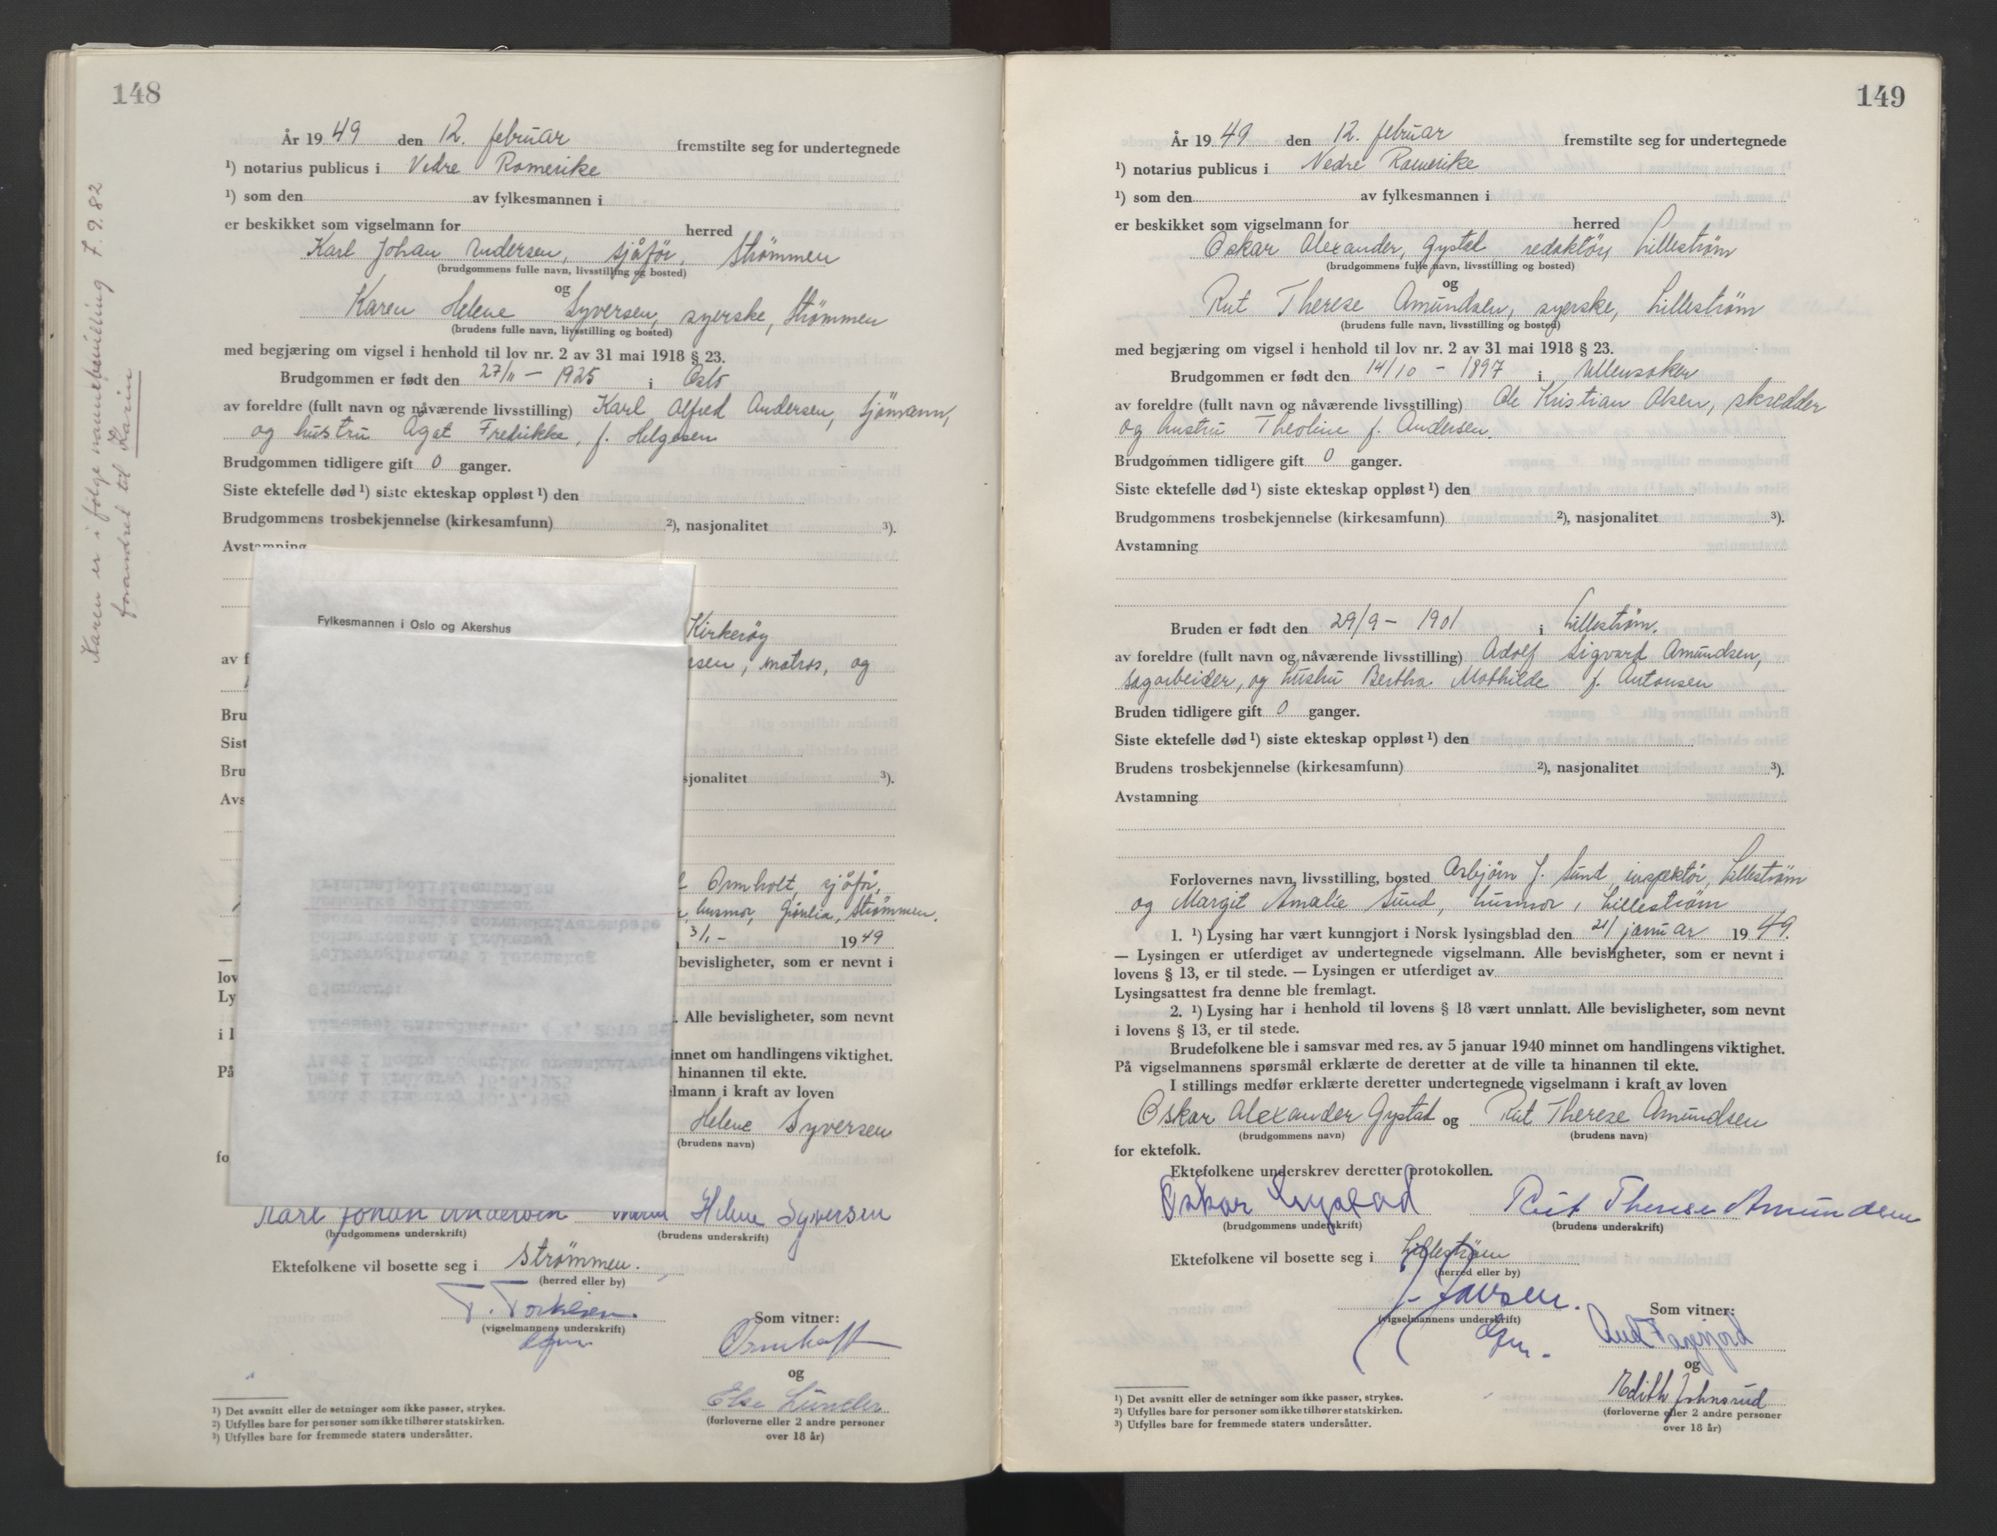 148
År 1949 den 12. februar fremstilte seg for undertegnede
¹) notarius publicus i Nedre Romerike
¹) som den av fylkesmannen i
er beskikket som vigselmann for herred
Karl Johan Andersen, sjåfør, Strømmen
(brudgommens fulle navn, livsstilling og bosted)
og
Karen Helene Syversen, syerske, Strømmen
(brudens fulle navn, livsstilling og bosted)
med begjæring om vigsel i henhold til lov nr. 2 av 31 mai 1918 § 23.
Brudgommen er født den 27/11 – 1925 i Oslo
av foreldre (fullt navn og nåværende livsstilling) Karl Alfred Andersen, sjømann,
og hustru Agat Fredrikke, f. Helgesen
Brudgommen tidligere gift 0 ganger.
Siste ektefelle død ¹) siste ekteskap oppløst ¹) den
Brudgommens trosbekjennelse (kirkesamfunn) ²), nasjonalitet ³).
Avstamning
Karen er i følge navnebevilling 7.9.82
forandret til Karin
Fylkesmannen i Oslo og Akershus
Kirkerøy
av f rsen, matros, og
Bru
Sist
Bru sjonalitet ³).
Avs
Ormholt, sjåfør,
husmor, Strømmen.
3/1 – 1949
— bevisligheter, som er nevnt i
lov
Ly
. Alle bevisligheter, som nevnt
i l
innet om handlingens viktighet.
På hinannen til ekte.
lmann i kraft av loven
Helene Syversen
(brudens navn)
fo
Karl Johan Andersen Helene Syversen
(brudgommens underskrift) (brudens underskrift)
Ektefolkene vil bosette seg i Strømmen.
(herred eller by)
T. Torkilsen. Som vitner:
(vigselmannens underskrift)
Ormholt
og
Else Lunder
(forloverne eller 2 andre personer
over 18 år)
¹) Det avsnitt eller de setninger som ikke passer, strykes.
²) Utfylles bare for personer som ikke tilhører statskirken.
³) Utfylles bare for fremmede staters undersåtter.
149
År 1949 den 12. februar fremstilte seg for undertegnede
¹) notarius publicus i Nedre Romerike
¹) som den av fylkesmannen i
er beskikket som vigselmann for herred
Oskar Alexander, Gystad redaktør, Lillestrøm
(brudgommens fulle navn, livsstilling og bosted)
og
Rut Therese Amundsen, syerske, Lillestrøm
(brudens fulle navn, livsstilling og bosted)
med begjæring om vigsel i henhold til lov nr. 2 av 31 mai 1918 § 23.
Brudgommen er født den 14/10 – 1897 i Ullensaker
av foreldre (fullt navn og nåværende livsstilling) Ole Kristian Olsen, skredder
og hustru Theoline f. Andersen.
Brudgommen tidligere gift 0 ganger.
Siste ektefelle død ¹) siste ekteskap oppløst ¹) den
Brudgommens trosbekjennelse (kirkesamfunn) ²), nasjonalitet ³).
Avstamning
Bruden er født den 29/9 – 1901 i Lillestrøm.
av foreldre (fullt navn og nåværende livsstilling) Adolf Sigvard Amundsen,
sagarbeider, og hustru Bertha Mathilde f. Antonsen
Bruden tidligere gift 0 ganger.
Siste ektefelle død ¹) siste ekteskap oppløst ¹) den
Brudens trosbekjennelse (kirkesamfunn) ²), nasjonalitet ³).
Avstamning
Forlovernes navn, livsstilling, bosted Asbjørn J. Sund, inspektør, Lillestrøm
og Margit Amalie Sund, husmor, Lillestrøm
1. ¹) Lysing har vært kunngjort i Norsk lysingsblad den 21/ januar 1949.
— Lysingen er utferdiget av undertegnede vigselmann. Alle bevisligheter, som er nevnt i
lovens § 13, er til stede. — Lysingen er utferdiget av
Lysingsattest fra denne ble fremlagt.
2. ¹) Lysing har i henhold til lovens § 18 vært unnlatt. Alle bevisligheter, som nevnt
i lovens § 13, er til stede.
Brudefolkene ble i samsvar med res. av 5 januar 1940 minnet om handlingens viktighet.
På vigselmannens spørsmål erklærte de deretter at de ville ta hinannen til ekte.
I stillings medfør erklærte deretter undertegnede vigselmann i kraft av loven
Oskar Alexander Gystad og Rut Therese Amundsen
(brudgommens navn) (brudens navn)
for ektefolk.
Ektefolkene underskrev deretter protokollen.
Oskar Gystad Rut Therese Amundsen
(brudgommens underskrift) (brudens underskrift)
Ektefolkene vil bosette seg i Lillestrøm
(herred eller by)
Som vitner:
(vigselmannens underskrift)
Aud Fagefjord
og
Edith Johnsrud
(forloverne eller 2 andre personer
over 18 år)
¹) Det avsnitt eller de setninger som ikke passer, strykes.
²) Utfylles bare for personer som ikke tilhører statskirken.
³) Utfylles bare for fremmede staters undersåtter.